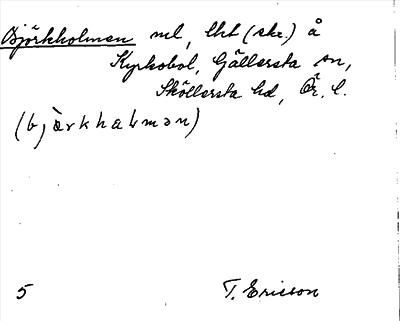 Björkholmen ml, lht (skr.) å
Kyrkobol, Gällersta sn,
Sköllersta hd, Ör. l.
(bjàrkhalmən)
5 T. Ericson